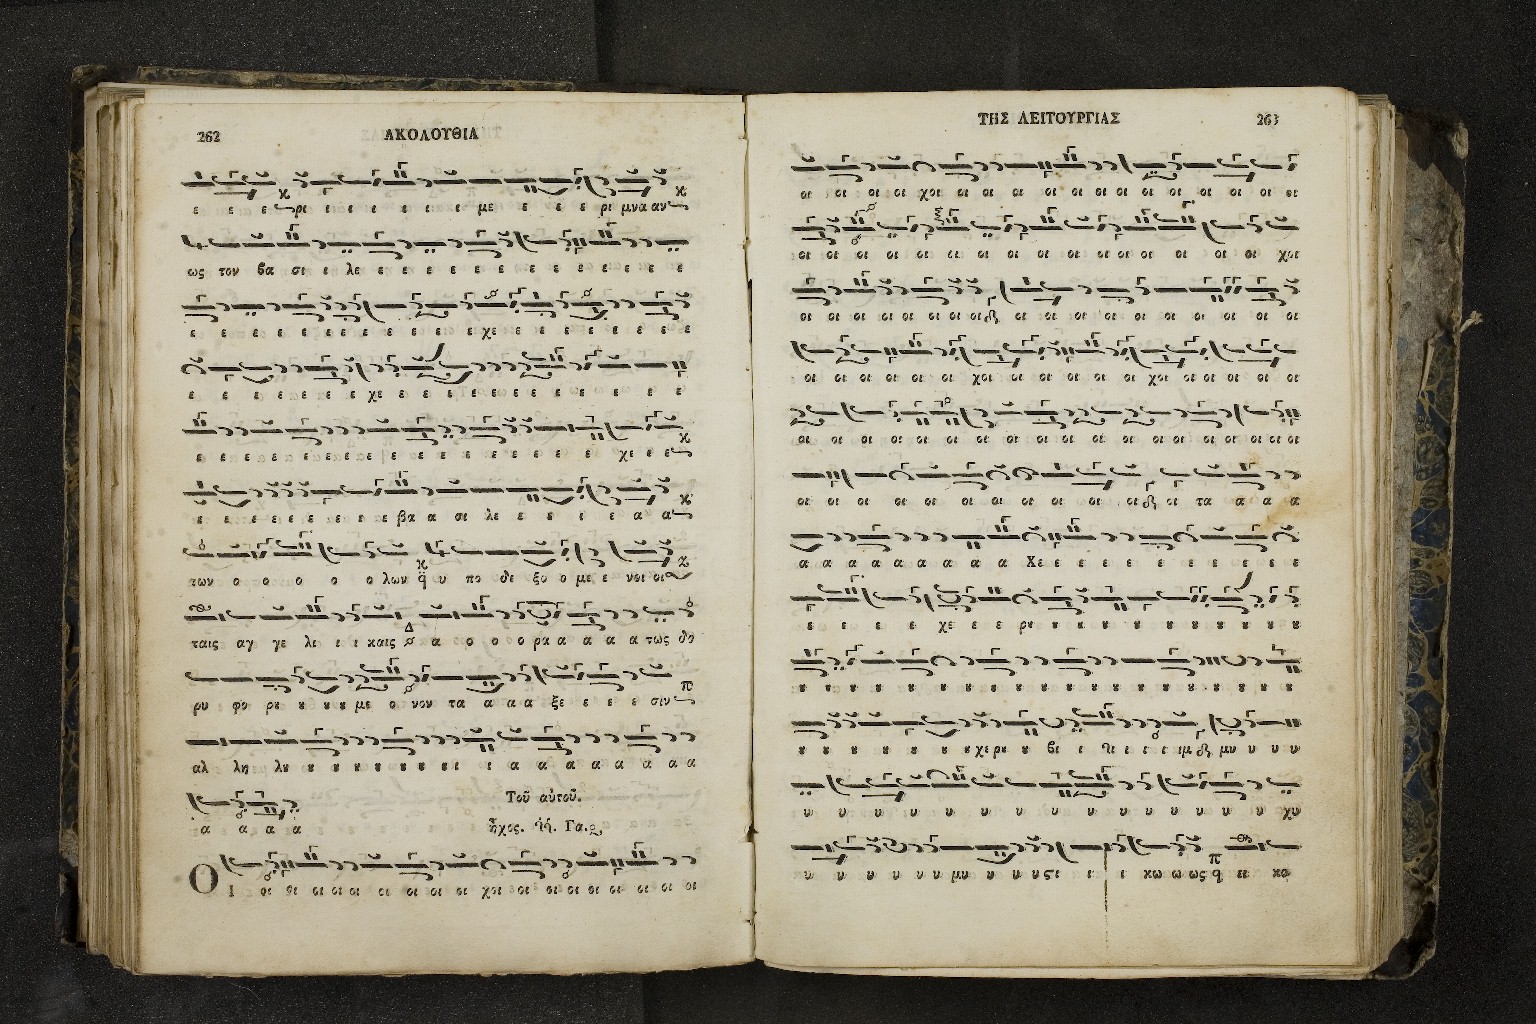 262 ΑΚΟΛΟΥΘΙΑ
ε ε ε ρι ε ε ε ε ε ε με ε ε ε ρι μνα αν
ως τον βα σι ε λε ε ε ε ε ε ε ε ε ε ε ε ε ε
ε ε ε ε ε ε ε ε ε ε ε χε ε ε ε ε ε ε ε ε
ε ε ε ε ε ε χε ε ε ε ε ε ε ε ε ε ε ε ε
ε ε ε ε ε ε ε ε ε ε ε ε ε ε ε ε ε χε ε ε
ε ε ε ε ε ε ε ε ε βα α σι λε ε ε ε ε α α
των ο ο ο ο ο λων υ πο δε ξο ο με ε νοι οι
ταις αγ γε λι ι ι καις α ο ο ο ρα α α α α τως δο
ρυ φο ρȣ ȣ ȣ ȣ με ο νον τα α α α ξε ε ε ε σιν
αλ λη λȣ ȣ ȣ ȣ ȣ ȣ ȣ ȣ ι ι α α α α α α α α
α α α α
Τοῦ αὐτοῦ.
ἦχος. Γα.
Ο Ι οι οι οι οι οι οι οι οι οι χοι οι οι οι οι οι οι οι οι οι οι
ΤΗΣ ΛΕΙΤΟΥΡΓΙΑΣ 263
οι οι οι οι χοι οι οι οι οι οι οι οι οι οι οι οι οι οι οι
οι οι οι οι οι οι οι οι οι οι οι οι οι οι οι οι χοι
οι οι οι οι οι οι οι οι οι οι οι οι οι οι οι οι οι οι
οι οι οι οι οι οι χοι οι οι οι οι οι χοι οι οι οι οι οι
οι οι οι οι οι οι οι οι οι οι οι οι οι οι οι οι οι οι οι
οι οι οι οι οι οι οι οι οι οι οι οι οι τα α α α
α α α α α α α α Χε ε ε ε ε ε ε ε ε ε
ε ε ε ε χε ε ε ρȣ ȣ ȣ ȣ ȣ ȣ ȣ ȣ ȣ ȣ
ȣ ȣ ȣ ȣ ȣ ȣ ȣ ȣ ȣ ȣ ȣ ȣ ȣ ȣ ȣ ȣ ȣ
ȣ ȣ ȣ ȣ ȣ ȣ ȣ χε ρȣ ȣ βι ι ι ι ι ι ιμ μυ υ υ υ
υ υ υ υ υ υ υ υ υ υ υ υ υ υ υ χυ
υ υ υ υ υ υ μυ υ υ υ ςι ι ι κω ω ως ει κο